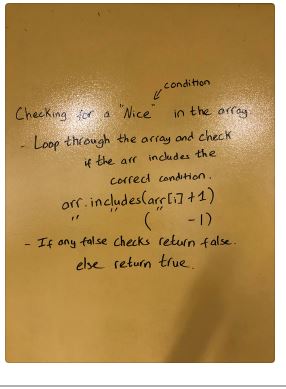 condition
Checking for a "Nice" in the array
- Loop through the array and check
if the arr includes the
correct condition.
arr.includes(arr[i]+1)
" " " ( -1)
- If any false checks return false.
else return true.